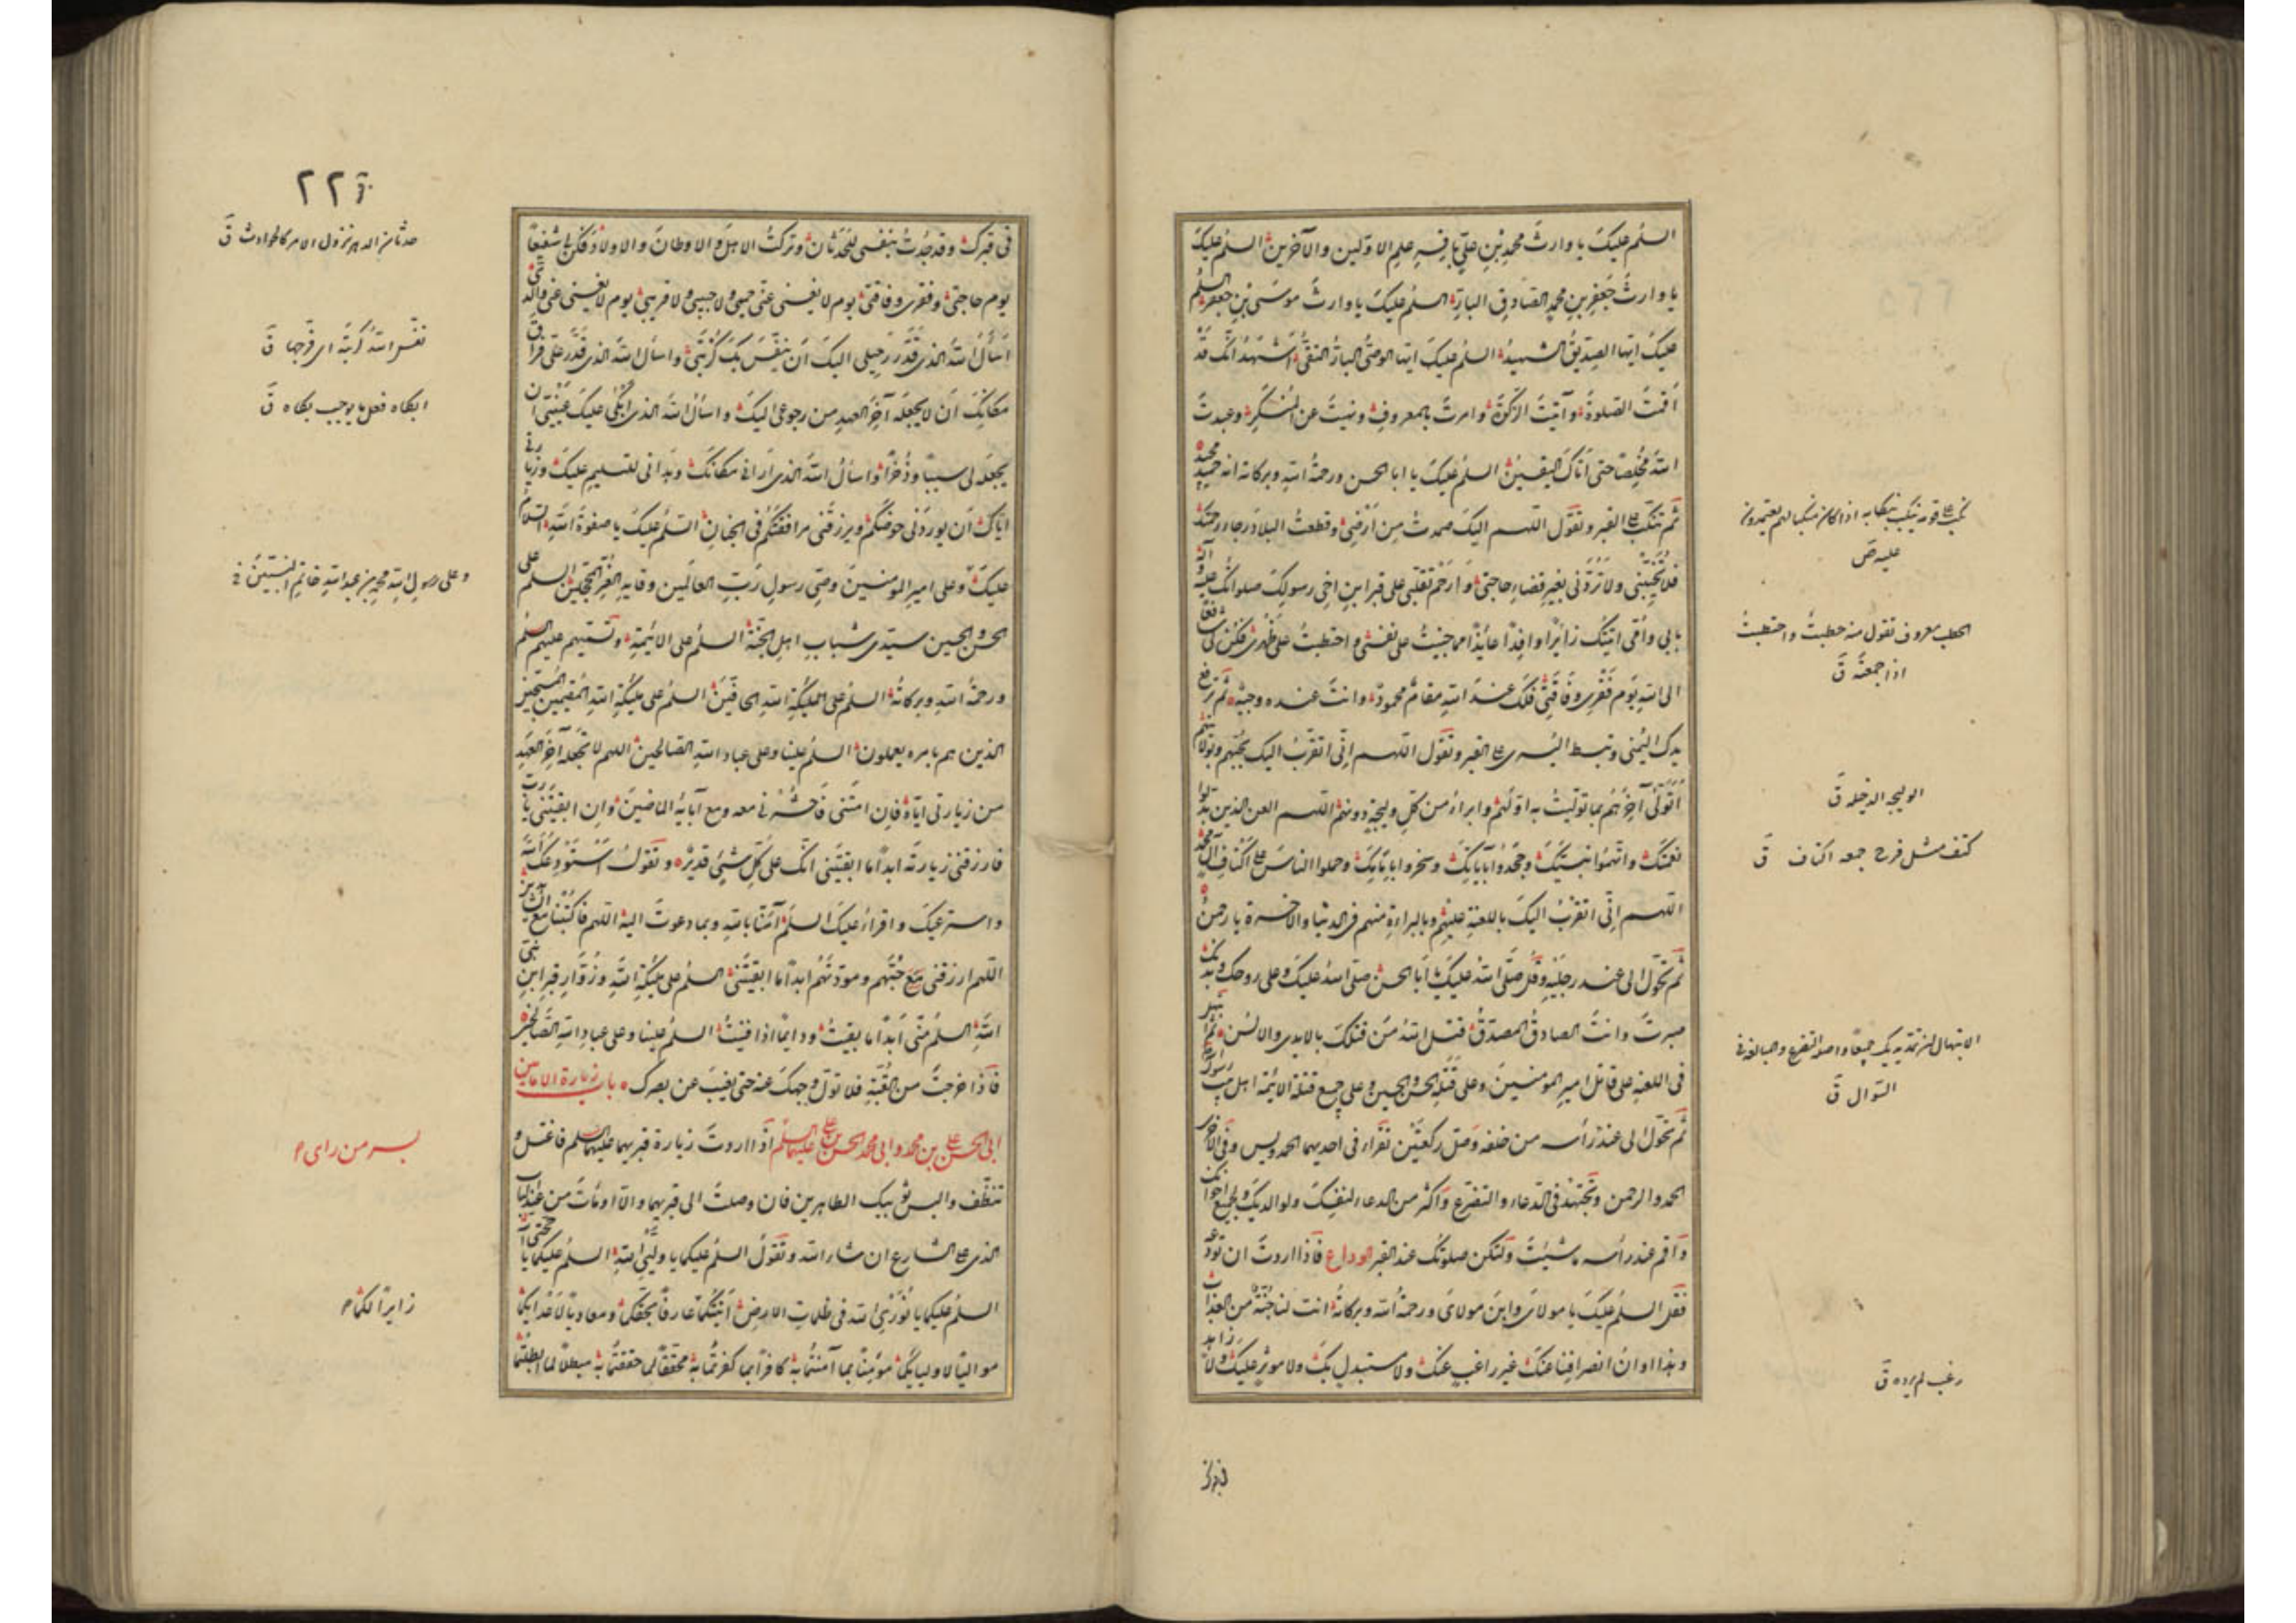 السلم عليك يا وارث محمد بن علي باقر علم الاولين والآخرين السلم عليك
يا وارث جعفر بن محمد الصادق البار السلم عليك يا وارث موسى بن جعفر السلم
عليك ايها الصديق الشهيد السلم عليك ايها الوصي البار التقي اشهد انك قد
اقمت الصلوة وآتيت الزكوة وامرت بالمعروف ونهيت عن المنكر وعبدت
الله مخلصا حتى أتاك اليقين السلم عليك يا ابا الحسن ورحمة الله وبركاته انه حميد مجيد
ثم تنكب على القبر وتقول اللهم اليك صمدت من ارضي وقطعت البلاد رجاء رحمتك
فلا تخيبني ولا تردني بغير قضاء حاجتي وارحم تقلبي على قبر ابن اخي رسولك صلواتك عليه وآله
بابي وأمي اتيتك زائرا وافدا عائذا مما جنيت على نفسي واحتطبت على ظهري فكن لي شافعا
الى الله يوم فقري وفاقتي فلك عند الله مقام محمود وانت عنده وجيه ثم ترفع
يدك اليمنى وتبسط اليسرى على القبر وتقول اللهم اني اتقرب اليك بحبهم وبولايتهم
أتولى آخرهم بما توليت به اولهم وابراء من كل وليجة دونهم اللهم العن الذين بدلوا
نعمتك واتهموا نبيك وجحدوا بآياتك وسخروا بامامك وحملوا الناس على اكتاف آل محمد
اللهم اني اتقرب اليك باللعنة عليهم وبالبراءة منهم في الدنيا والآخرة يا رحمن
ثم تحول الى عند رجليه وقل صلى الله عليك يا أبا الحسن صلى الله عليك وعلى روحك وبدنك
صبرت وانت الصادق المصدق قتل الله من قتلك بالايدى والالسن ثم ابتهل
في اللعنة على قاتل امير المؤمنين وعلى قتلة الحسن والحسين وعلى جميع قتلة الائمة اهل بيت رسول الله
ثم تحول الى عند رأسه من خلفه وصل ركعتين تقراء في احديهما الحمد ويس وفي الاخرى
الحمد والرحمن وتجتهد في الدعاء والتضرع واكثر من الدعاء لنفسك ولوالديك ولجميع اخوانك
واقم عند رأسه ما شئت ولتكن صلوتك عند القبر الوداع فاذا اردت ان تودعه
فقل السلم عليك يا مولاي وابن مولاي ورحمة الله وبركاته انت لنا جنة من العذاب
وهذا اوان انصرافنا عنك غير راغب عنك ولا مستبدل بك ولا موثر عليك ولا زاهد
نكب على قومه ينكب نكابه اذا كان منكبا لهم يعتمدون
عليه ص
الحطب معروف تقول منه حطبت واحتطبت
اذا جمعته ق
الوليجه الدخله ق
كتف مثل فرح جمعه اكتاف ق
الابتهال ان تمد يديك جميعا واصله التضرع والمبالغه في
السوال ق
رغب لم يرده ق
في قبرك
٢٢٦
حدثان الدهر نزول الامر كالحوادث ق
في قبرك وقد جدت بنفسي للحدثان وتركت الاهل والاوطان والاولاد فكن لي شفيعا
يوم حاجتي وفقري وفاقتي يوم لا يغني عني حميمي ولا حبيبي ولا قريبي يوم لا يغني عني والدي
أسأل الله الذي قدر رحيلي اليك ان ينفس بك كربتي واسأل الله الذي قدر علي فراق
مكانك ان لا يجعله آخر العهد من رجوعي اليك واسأل الله الذي ابكى عليك عيني ان
يجعله لي سببا وذخرا واسأل الله الذي اراني مكانك وهداني للتسليم عليك وزيارتي
اياك ان يوردني حوضكم ويرزقني مرافقتكم في الجنان السلم عليك يا صفوة الله السلام
عليك وعلى امير المومنين وصي رسول رب العالمين وقايد الغر المحجلين السلم على
الحسن والحسين سيدي شباب اهل الجنة السلم على الائمة وتسميهم عليهم السلم
ورحمة الله وبركاته السلم على ملئكة الله الحافين السلم على ملئكة الله المقيمين المسبحين
الذين هم بامره يعملون السلم علينا وعلى عباد الله الصالحين اللهم لا تجعله آخر العهد
من زيارتي اياه فان امتني فاحشرني معه ومع آبائه الماضين وان ابقيتني يا رب
فارزقني زيارته ابدا ما ابقيتني انك على كل شيء قدير وتقول استودعك الله
واسترعيك واقراء عليك السلم آمنا بالله وبما دعوت اليه اللهم فاكتبنا مع الشاهدين
اللهم ارزقني حبهم ومودتهم ابدا ما ابقيتني السلم على ملئكة الله وزوار قبر ابن نبي
الله السلم مني أبدا ما بقيت ودايما اذا فنيت السلم علينا وعلى عباد الله الصالحين
فاذا خرجت من القبة فلا تول وجهك عنه حتى يغيب عن بصرك باب زيارة الامامين
ابي الحسن علي بن محمد وابي محمد الحسن بن علي عليهما السلم اذا اردت زيارة قبريهما عليهما السلم فاغتسل و
تنظف والبس ثوبيك الطاهرين فان وصلت الى قبريهما والا اومأت من عند الباب
الذي على الشارع ان شاء الله وتقول السلم عليكما يا وليي الله السلم عليكما يا حجتي الله
السلم عليكما يا نوري الله في ظلمات الارض اتيتكما عارفا بحقكما ومعاديا لاعدائكما
مواليا لاوليائكما مؤمنا بما آمنتما به كافرا بما كفرتما به محققا لما حققتما مبطلا لما ابطلتما
نفس الله كربته اي فرجها ق
ابكاه فعل ما يوجب بكاه ق
وعلى رسول الله محمد بن عبد الله خاتم النبيين
بسر من راى
زايرا لكما